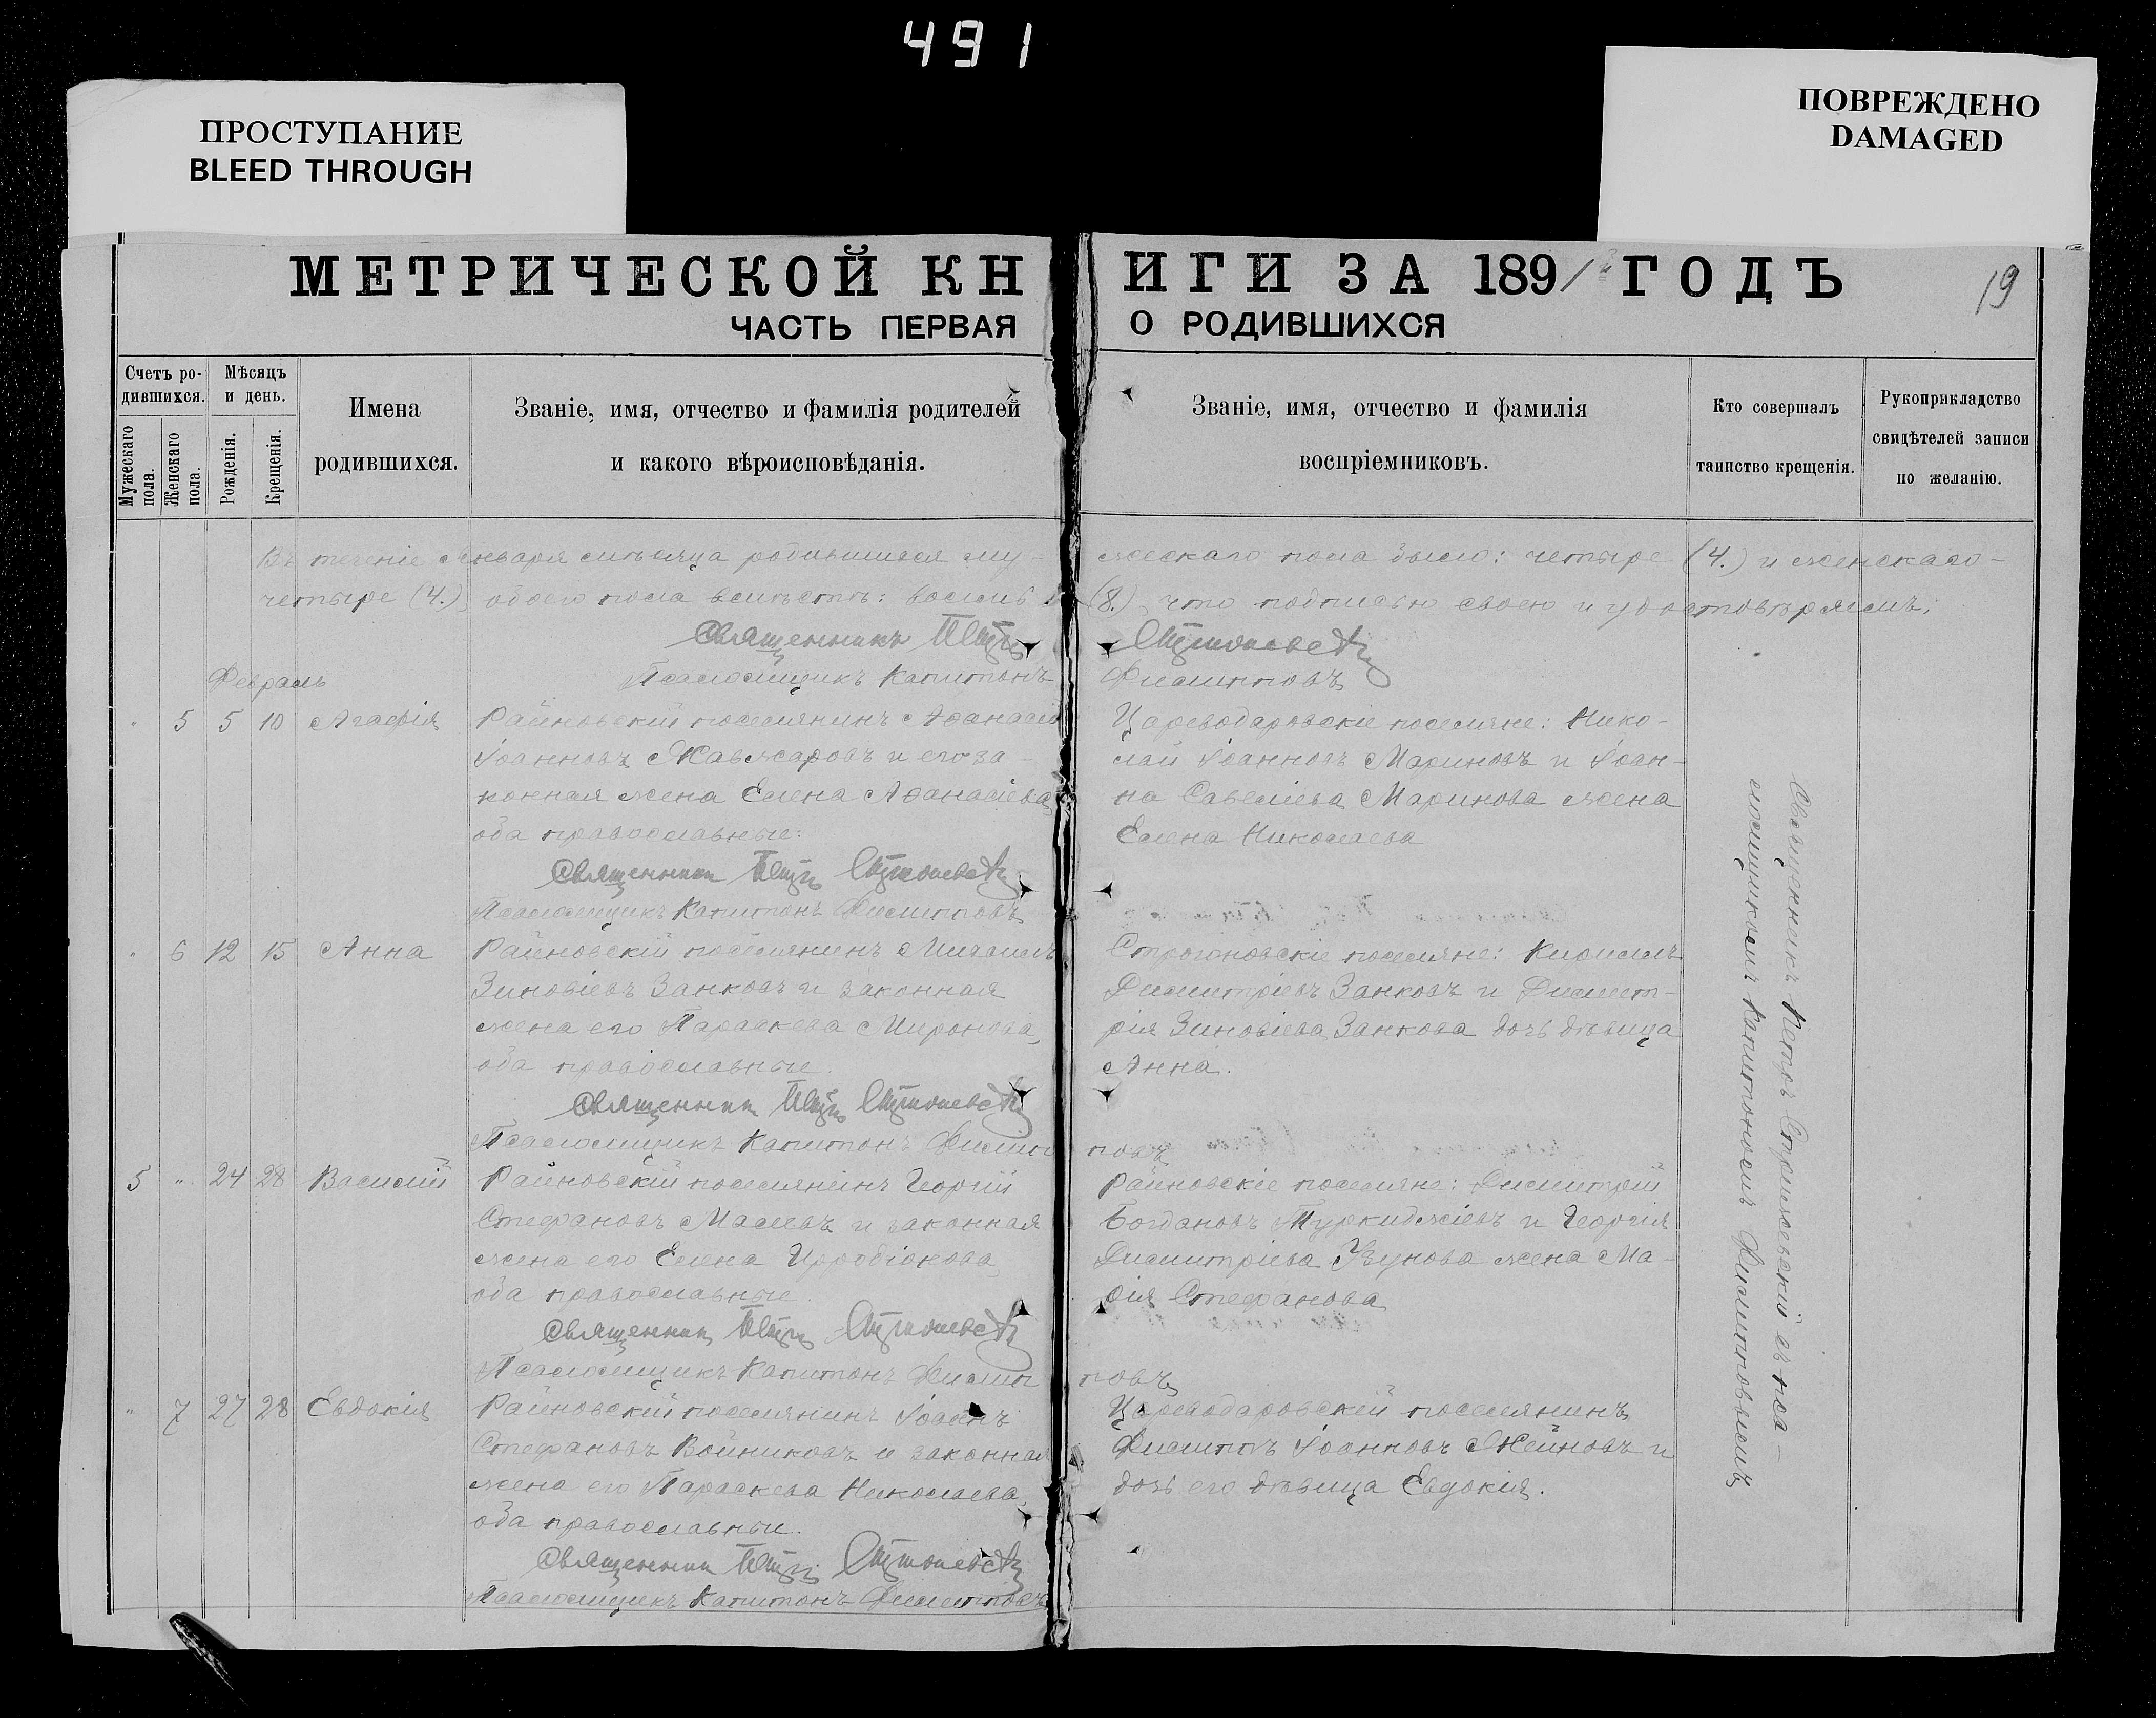 491
ПРОСТУПАНИЕ
BLEED THROUGH
ПОВРЕЖДЕНО
DAMAGED
МЕТРИЧЕСКОЙ КНИГИ ЗА 1891 ГОДЪ
19
ЧАСТЬ ПЕРВАЯ О РОДИВШИХСЯ
Счетъ ро-
дившихся.
Мужескаго
пола.
Женскаго
пола.
Мѣсяцъ
и день.
Рожденія.
Крещенія.
Имена
родившихся.
Званіе, имя, отчество и фамилія родителей
и какого вѣроисповѣданія.
Званіе, имя, отчество и фамилія
воспріемниковъ.
Кто совершалъ
таинство крещенія.
Рукоприкладство
свидѣтелей записи
по желанію.
Въ теченіе января мѣсяца родившихся му-жескаго пола было: четыре (4.) и женскаго-
четыре (4.), обоего пола вмѣстѣ: восемь (8.), что подписью своею и удостовѣряемъ:
Священникъ Петръ
Псаломщикъ Капитонъ Филипповъ
Февраль
" 5 5 10 Агафія
Райновскій поселянинъ Аѳанасій
Іоанновъ Жавжаровъ и его за-
конная жена Елена Аѳанасіева,
оба православные.
Священникъ Петръ
Псаломщикъ Капитонъ Филипповъ
Царводаровскіе поселяне: Нико-
лай Іоанновъ Мариновъ и Іоан-
на Савеліева Маринова жена
Елена Николаева
" 6 12 15 Анна
Райновскій поселянинъ Михаилъ
Зиновіевъ Занковъ и законная
жена его Параскева Миронова,
оба православные.
Священникъ Петръ
Псаломщикъ Капитонъ Филипповъ
Строгоновскіе поселяне:
Димитріевъ Занковъ и Димит-
рія Зиновіева Занкова дочь дѣвица
Анна.
5 " 24 28 Василій
Райновскій поселянинъ Георгій
Стефановъ и законная
жена его Елена
оба православные.
Священникъ Петръ
Псаломщикъ Капитонъ Филипповъ
Райновскіе поселяне: Димитрій
Богдановъ Туркиджіевъ и Георгія
Димитріева Узунова жена Ма-
рія Стефанова
" 7 27 28 Евдокія
Райновскій поселянинъ Іоаннъ
Стефановъ Войниковъ и законная
жена его Параскева Николаева,
оба православныи.
Священникъ Петръ
Псаломщикъ Капитонъ Филипповъ
Царводаровскій поселянинъ
Филиппъ Іоанновъ Жейновъ и
дочь его дѣвица Евдокія.
Священникъ Петръ съ пса-
ломщикомъ Капитономъ Филипповымъ